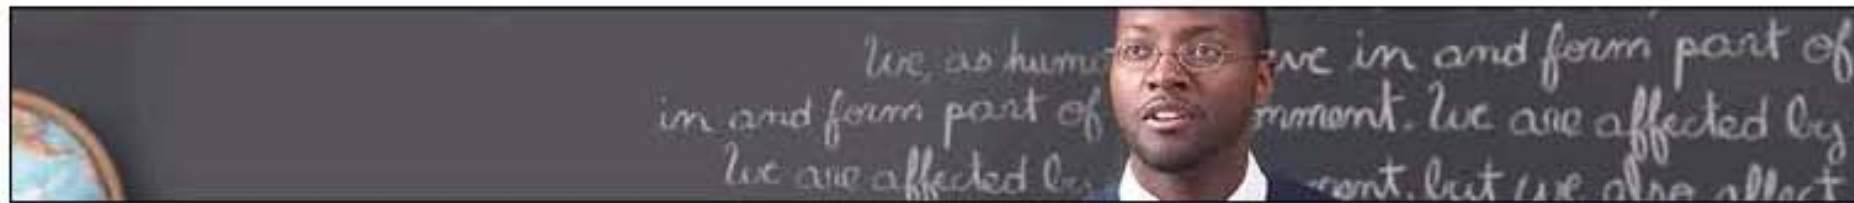 We, as hum ve in and form part of
in and form part of nment. We are affected by
We are affected by ent, but we also affect